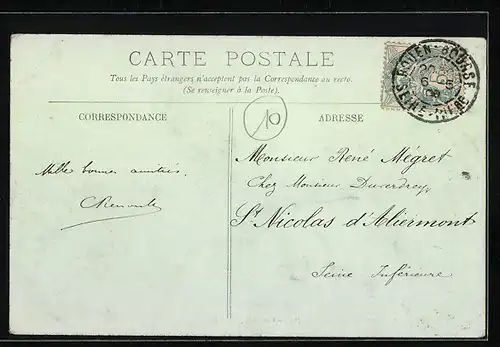 CARTE POSTALE
Tous les Pays étrangers n'acceptent pas la Correspondance au recto.
(Se renseigner à la Poste).
ROUEN-BOURSE
SEINE-INFRE
10
CORRESPONDANCE
ADRESSE
Mille bonnes amitiés.
Monsieur René Mégret
Chez Monsieur
St Nicolas d'Aliermont
Seine Inférieure